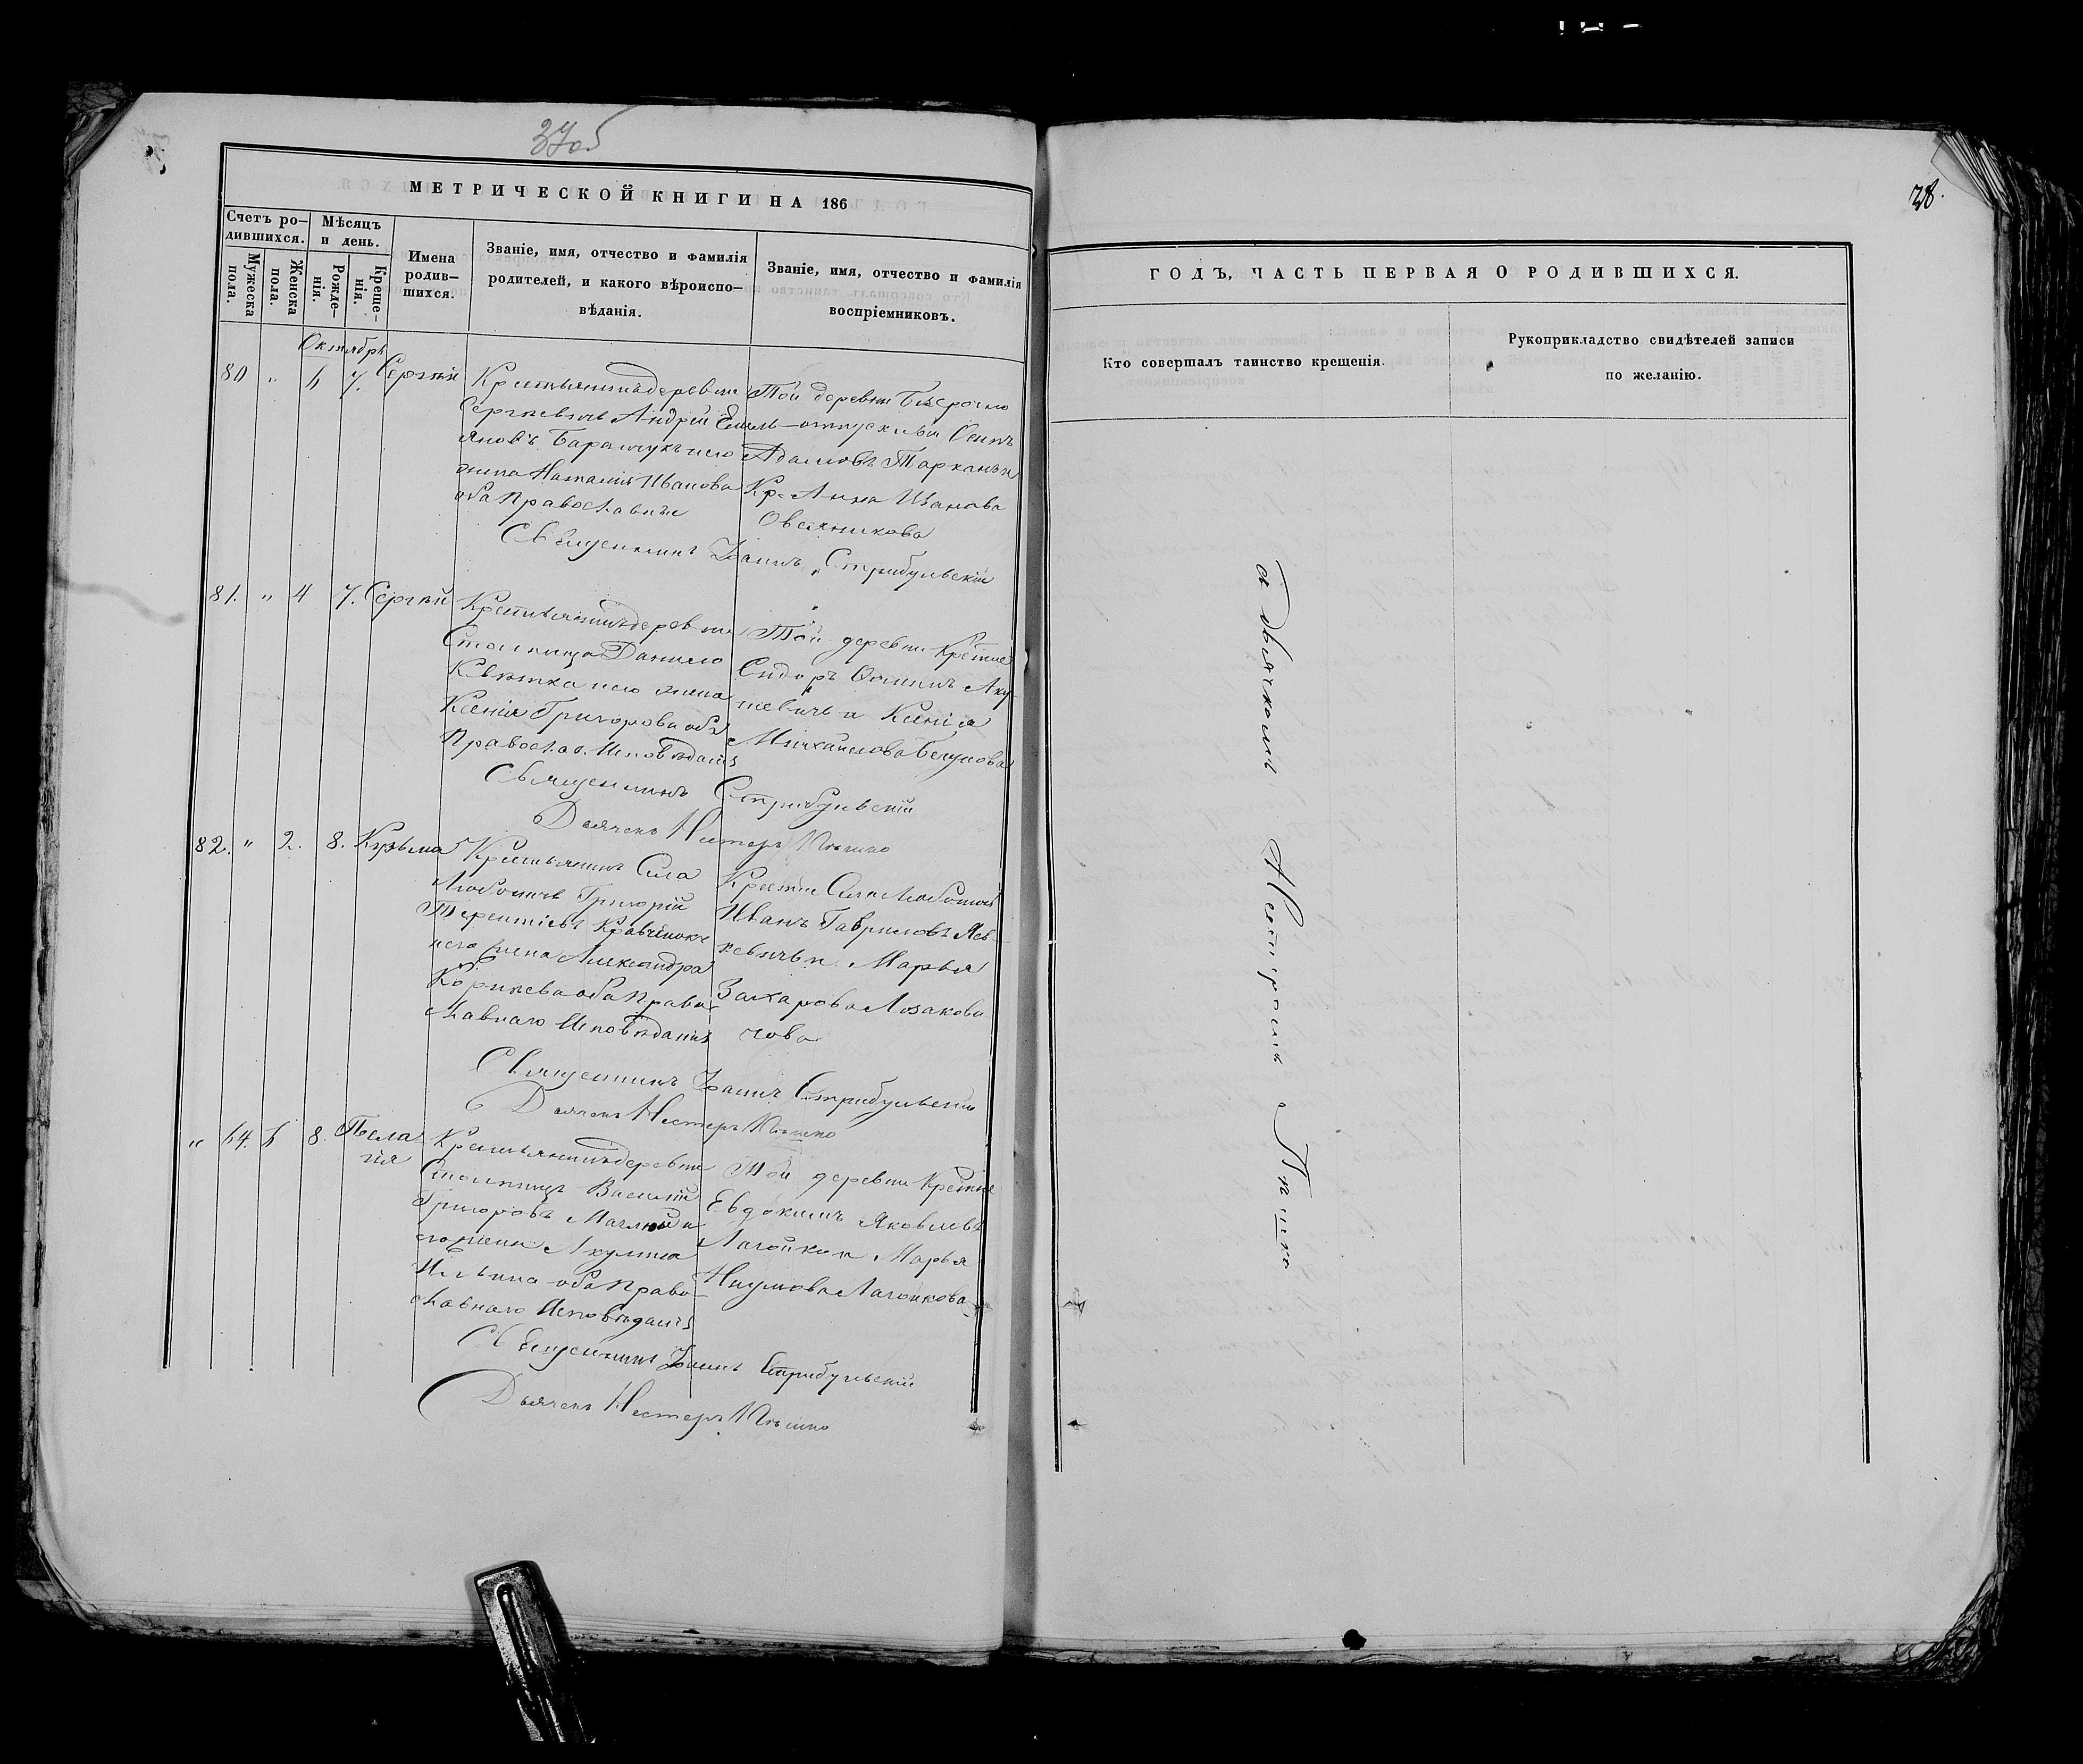 37об
МЕТРИЧЕСКОЙ КНИГИ НА 186
Счетъ ро-
дившихся.
Мѣсяцъ
и день.
Мужеска
пола.
Женска
пола.
Рожде-
нія.
Креще-
нія.
Имена
родив-
шихся.
Званіе, имя, отчество и фамилія
родителей, и какого вѣроиспо-
вѣданія.
Званіе, имя, отчество и фамилія
воспріемниковъ.
Октябрь
80 " 7. Сергѣй
Крестьянинъ деревни
Сергѣевичъ Андрей Емель-
яновъ его
жена Наталія Иванова
оба Православные
Той деревни
отпускной Осипъ
Адамовъ Тарканъ и
Кр. Анна Иванова
Овсяникова
Священникъ Іоаннъ Стрибульскій
81. " 4 7. Сергѣй
Крестьянинъ деревни
Данило
Квятка и его жена
Ксенія Григорова оба
Правосл. Исповѣданія
Той деревни Крестне
Сидоръ Яку-
шевичъ и Ксенія
Михайлова
Священникъ Стрибульскій
Дьячекъ Нестеръ Пышко
82. " 2. 8. Кузьма
Крестьянинъ Села
Любоничъ Григорій
Терентіевъ Кравченокъ
и его жена Александра
Корнѣева оба Право-
славнаго Исповѣданія
Крестне Села Любоничъ
Иванъ Гавриловъ Яс-
кевичъ и Марья
Захарова Лозакови-
чова
Священникъ Іоаннъ Стрибульскій
Дьячекъ Нестеръ Пышко
" 64. 8. Пела-
гія
Крестьянинъ деревни
Василій
Григоровъ и
его жена Акулина
Ильина оба Право-
славнаго Исповѣданія
Той деревни Крестне
Евдокимъ Яковлевъ
Лагойко и Марья
Наумова Лагойкова
Священникъ Іоаннъ Стрибульскій
Дьячекъ Нестеръ Пышко
38.
ГОДЪ, ЧАСТЬ ПЕРВАЯ О РОДИВШИХСЯ.
Кто совершалъ таинство крещенія.
Рукоприкладство свидѣтелей записи
по желанію.
съ дьячкомъ Нестеромъ Пышко